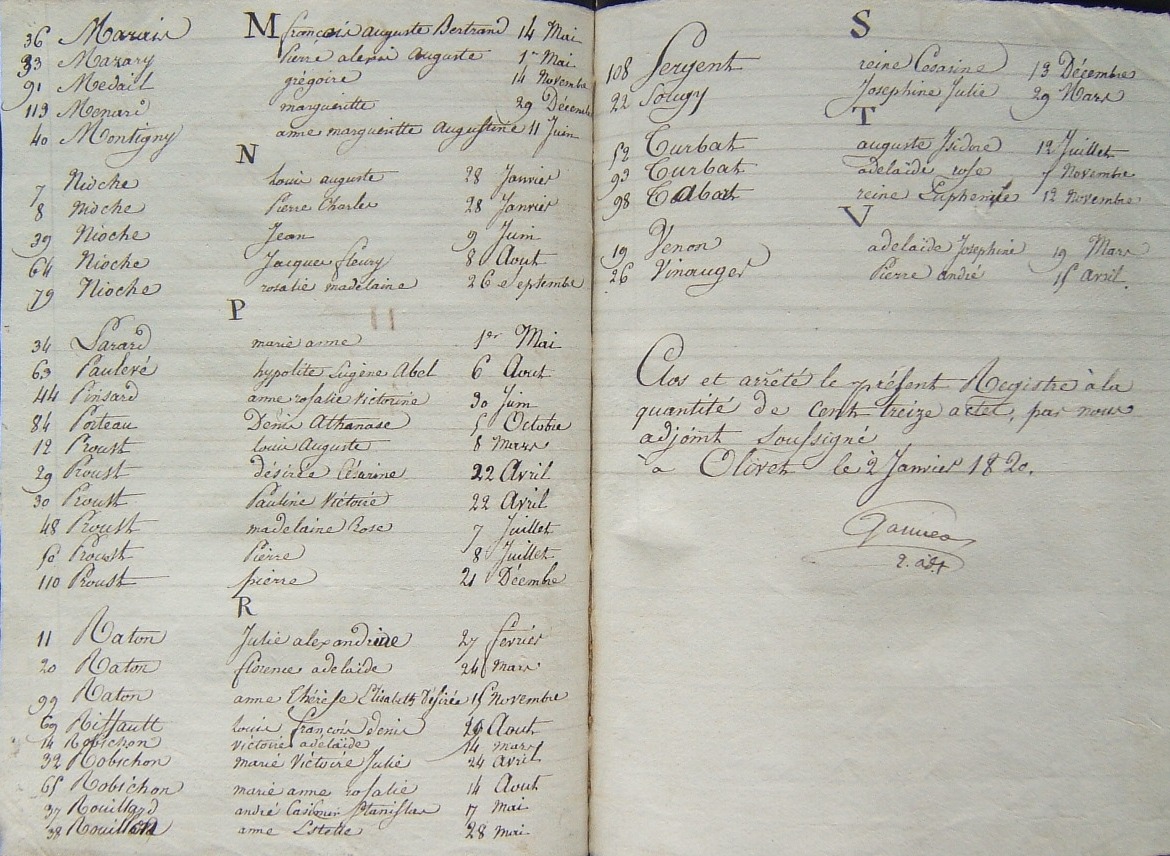 M
36 Marais françois auguste Bertrand 14 Mai
33 Mazary Pierre alexis auguste 1er Mai
91 Medail grégoire 14 Novembre
113 Menard margueritte 29 Décemb
40 Montigny anne margueritte Augustine 11 Juin
N
7 Nioche Louis auguste 28 Janvier
8 Nioche Pierre Charles 28 Janvier
39 Nioche Jean 9 Juin
64 Nioche Jacques fleury 8 Aout
79 Nioche rosalie madelaine 26 Septembre
P
34 marie anne 1er Mai
63 Paulevé hypolite Eugène Abel 6 Aout
44 Pinsard anne rosalie Victorine 30 Juin
84 Poteau Denis Athanase 5 Octobre
12 Proust louis Auguste 8 Mars
29 Proust désirée Césarine 22 Avril
30 Proust Pauline Victoire 22 Avril
48 Proust madelaine Rose 7 Juillet
50 Proust Pierre 8 Juillet
110 Proust pierre 21 Décembre
R
11 Raton Julie alexandrine 27 fevrier
20 Raton florence adelaïde 24 mars
99 Raton anne Thérèse Elisabeth Désirée 15 Novembre
69 Riffault louis françois denis 26 Aout
14 Robichon victoire adelaïde 14 mars
32 Robichon marie Victoire Julie 24 Avril
65 Robichon marie anne rosalie 14 Aout
37 Rouillard andré Casimir Stanislas 17 Mai
38 Rouillard anne Estelle 28 mai
S
108 Sergent reine Cesarine 13 Décembre
22 Solugy Josephine Julie 29 Mars
T
52 Turbat auguste Isidore 12 Juillet
93 Turbat adelaïde rose Novembre
98 Tabat reine Euphemie 12 Novembre
V
19 Venon adelaïde Josephine 19 Mars
26 Vinauger Pierre andré 15 avril.
Clos et arrêté le présent Registre à la
quantité de cent treize actes, par nous
adjoint soussigné
à Olivet le 2 Janvier 1820.